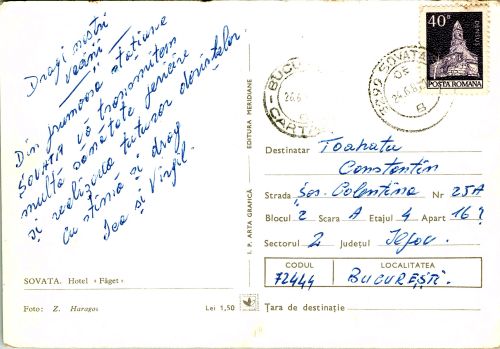 Dragi noștri
vecini
Din frumoasa stațiune
SOVATA vă transmitem
multă sănătate fericire
și realizarea tuturor dorințelor.
cu stimă și drag
Ica și Virgil.
SOVATA. Hotel «Făget»
Foto: Z. Haragos
Lei 1,50
I. P. ARTA GRAFICĂ
EDITURA MERIDIANE
40 B
POȘTA ROMANA
DENSUȘ
SOVATA
BUCU
CARTO
Destinatar Toahatu
Constantin
Strada Șos. Colentina Nr 25A
Blocul 2 Scara A Etajul 4 Apart 16
Sectorul 2 Județul Ilfov.
CODUL LOCALITATEA
72444 BUCUREȘTI.
Țara de destinație